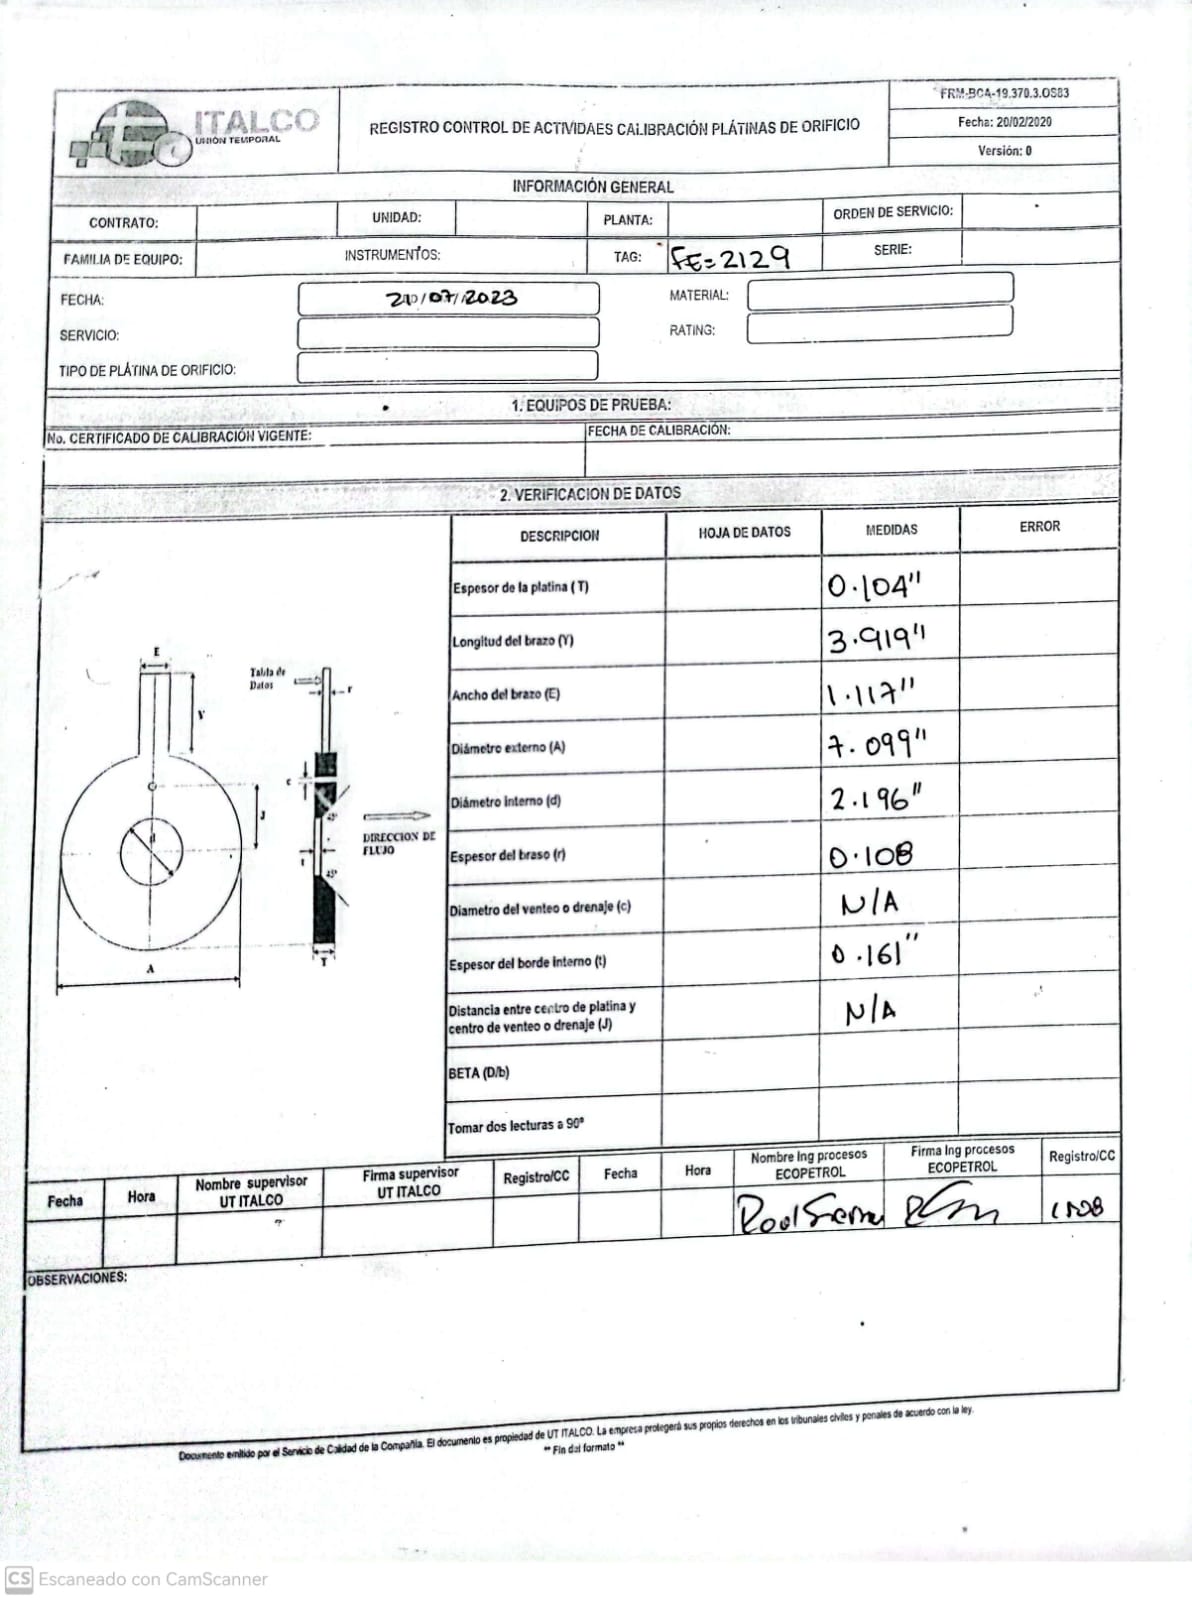 FRM-BCA-19.370.3.OS83
ITALCO
UNIÓN TEMPORAL
REGISTRO CONTROL DE ACTIVIDAES CALIBRACIÓN PLÁTINAS DE ORIFICIO
Fecha: 20/02/2020
Versión: 0
INFORMACIÓN GENERAL
CONTRATO: UNIDAD: PLANTA: ORDEN DE SERVICIO:
FAMILIA DE EQUIPO: INSTRUMENTOS: TAG: FE=2129 SERIE:
FECHA: /07/2023 MATERIAL:
SERVICIO: RATING:
TIPO DE PLÁTINA DE ORIFICIO:
1. EQUIPOS DE PRUEBA:
No. CERTIFICADO DE CALIBRACIÓN VIGENTE: FECHA DE CALIBRACIÓN:
2. VERIFICACION DE DATOS
DESCRIPCION HOJA DE DATOS MEDIDAS ERROR
Espesor de la platina (T) 0.104"
Longitud del brazo (Y) 3.919"
Ancho del brazo (E) 1.117"
Diámetro externo (A) 7.099"
Diámetro interno (d) 2.196"
Espesor del braso (r) 0.108
Diametro del venteo o drenaje (c) N/A
Espesor del borde interno (t) 0.161"
Distancia entre centro de platina y
centro de venteo o drenaje (J) N/A
BETA (D/b)
Tomar dos lecturas a 90º
E
Tabla de
Datos
r
Y
c
J
45°
d
DIRECCION DE
FLUJO
t
45°
A
T
Fecha Hora Nombre supervisor
UT ITALCO Firma supervisor
UT ITALCO Registro/CC Fecha Hora Nombre Ing procesos
ECOPETROL Firma Ing procesos
ECOPETROL Registro/CC
OBSERVACIONES:
Documento emitido por el Servicio de Calidad de la Compañía. El documento es propiedad de UT ITALCO. La empresa protegerá sus propios derechos en los tribunales civiles y penales de acuerdo con la ley.
** Fin del formato **
CS Escaneado con CamScanner